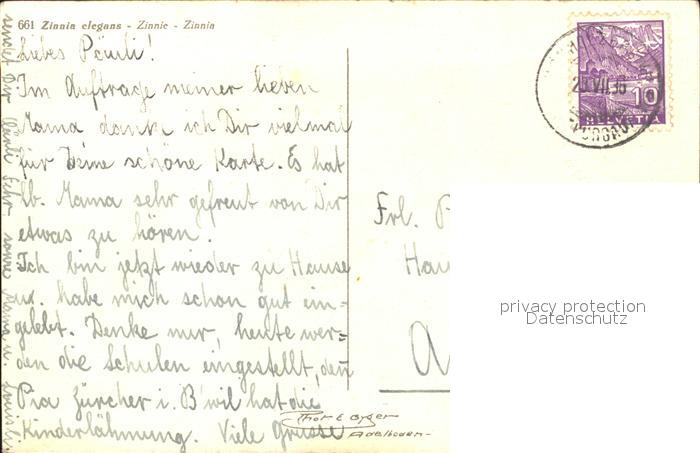 661 Zinnia elegans - Zinnie - Zinnia
Liebes Päuli!
Im Auftrage meiner lieben
Mama danke ich Dir vielmal
für Deine schöne Karte. Es hat
lb. Mama sehr gefreut von Dir
etwas zu hören.
Ich bin jetzt wieder zu Hause
u. habe mich schon gut ein=
gelebt. Denke nur, heute wer=
den die Schulen eingestellt, denn
Pia Zürcher i. B'wil hat die
Kinderlähmung. Viele Grüsse
sendet Dir Sehr sowie Mama u.
Frl. P
Hau
A
10
HELVETIA
VII.36
Phot E Gyger
Adelboden
privacy protection
Datenschutz